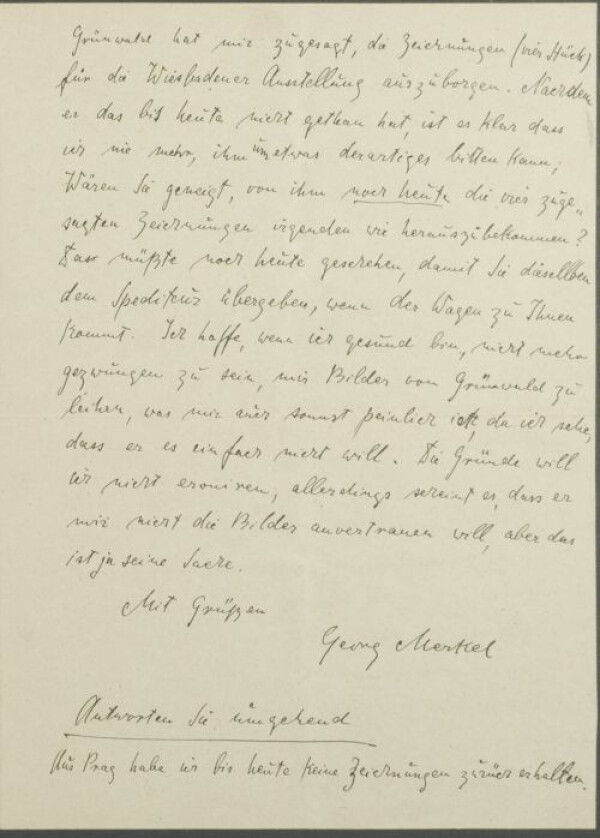 Grünwald hat mir zugesagt, die Zeichnungen (vier Stück)
für die Wiesbadener Ausstellung auszuborgen. Nachdem
er das bis heute nicht gethan hat, ist es klar dass
ich nie mehr, ihm um etwas derartiges bitten kann;
Wären Sie geneigt, von ihm noch heute die vier zuge„
sagten Zeichnungen irgenden wie herauszubekommen?
Dass müßte noch heute geschehen, damit Sie dieselben
dem Spediteur übergeben, wenn der Wagen zu Ihnen
kommt. Ich hoffe, wenn ich gesund bin, nicht mehr
gezwungen zu sein, mir Bilder vom Grünwald zu
leihen, was mir auch sonnst peinlich ist, da ich sehe,
dass er es einfach nicht will. Die Gründe will
ich nicht eroniren, allerdings scheint es, dass er
mir nicht die Bilder anvertrauen will, aber das
ist ja seine Sache.
Mit Grüßen
Georg Merkel
Antworten Sie umgehend
Aus Prag habe ich bis heute keine Zeichnungen zurück erhalten.